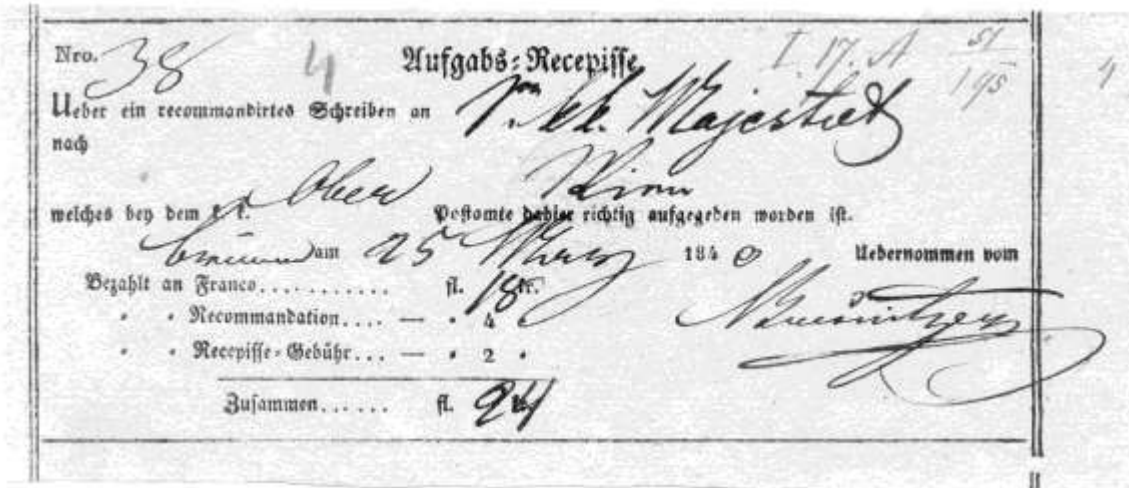 Nro. 38 4 Aufgabs-Recepisse I. 17. A 51
195 4
Ueber ein recommandirtes Schreiben an k.k. Majestät
nach Wien
welches bey dem k.k. Ober Postamte dahier richtig aufgegeben worden ist.
Brünn am 25 März 1840 Uebernommen vom
Bezahlt an Franco............ fl. 18 kr.
" " Recommandation.... — " 4 "
" " Recepisse-Gebühr... — " 2 "
Zusammen...... fl. 24